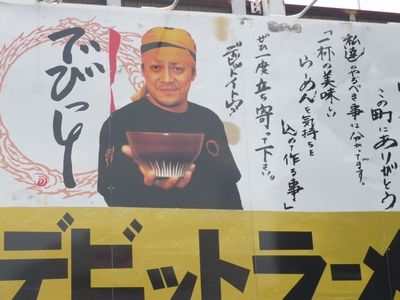 この町にありがとう
私達のやるべき事は分かってます。
「一杯の美味しい
らーめんを気持ちを
込めて作る事」
ぜひ一度立ち寄って下さい。
デビットイトウ
でびっと
デビットラーメ